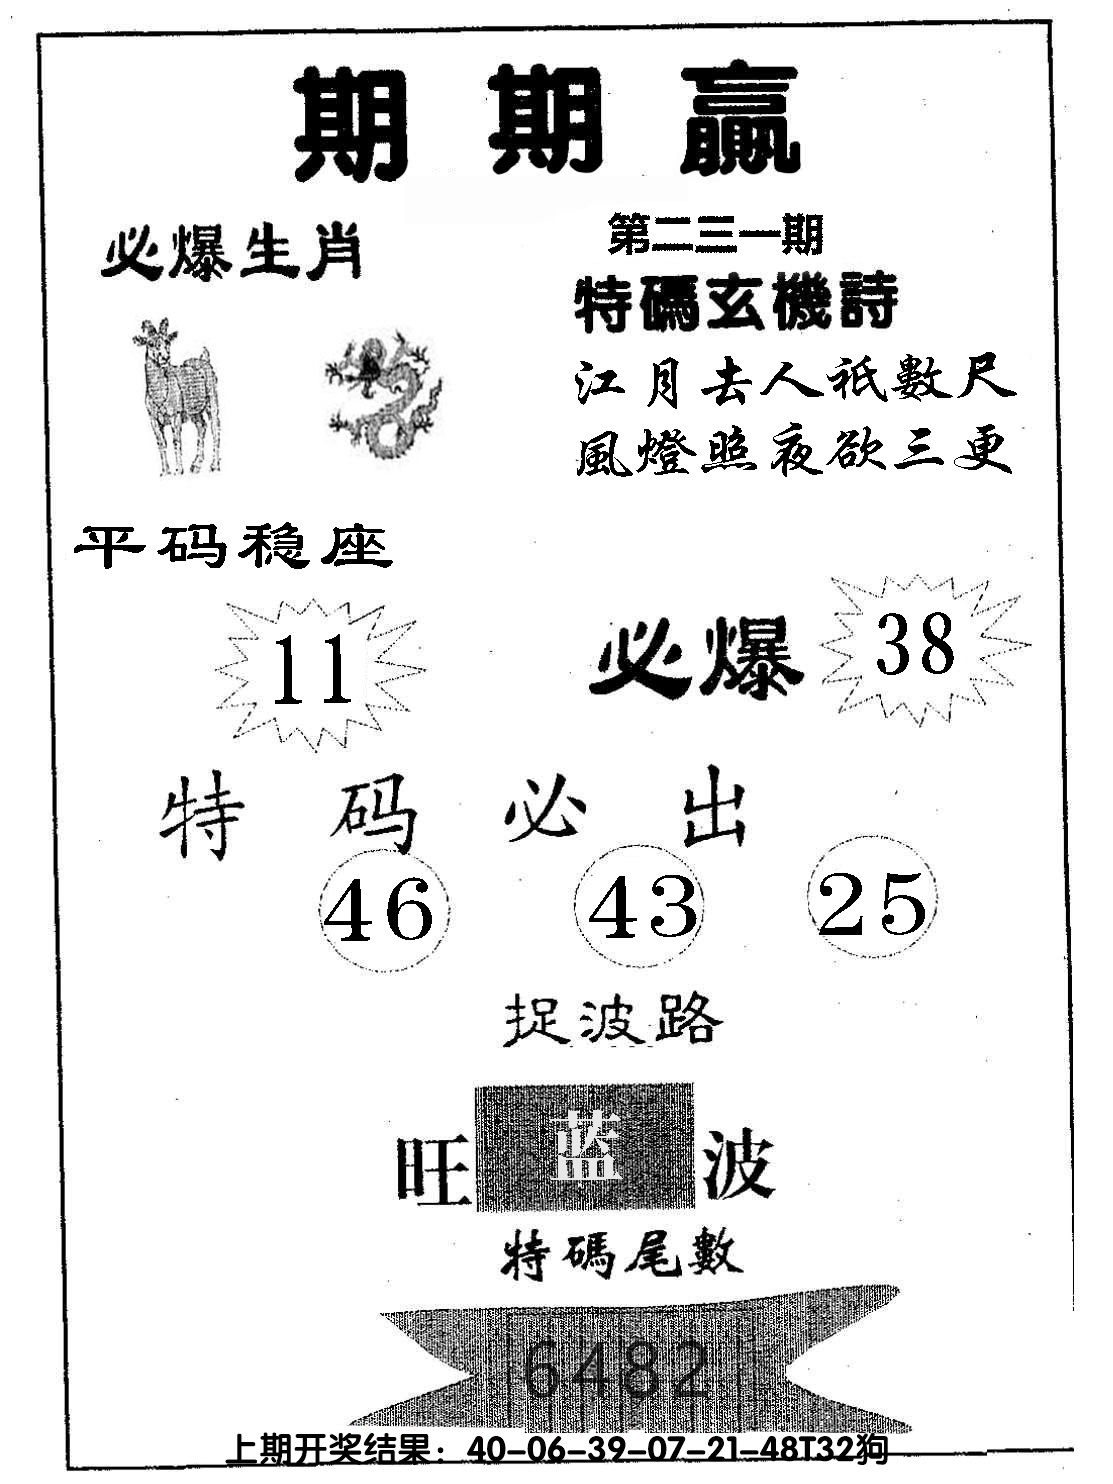 期期赢
第二三一期
必爆生肖
特碼玄機詩
江月去人祇數尺
風燈照夜欲三更
平码稳座
11
必爆 38
特码必出
46 43 25
捉波路
旺 蓝 波
特碼尾數
6482
上期开奖结果：40-06-39-07-21-48T32狗